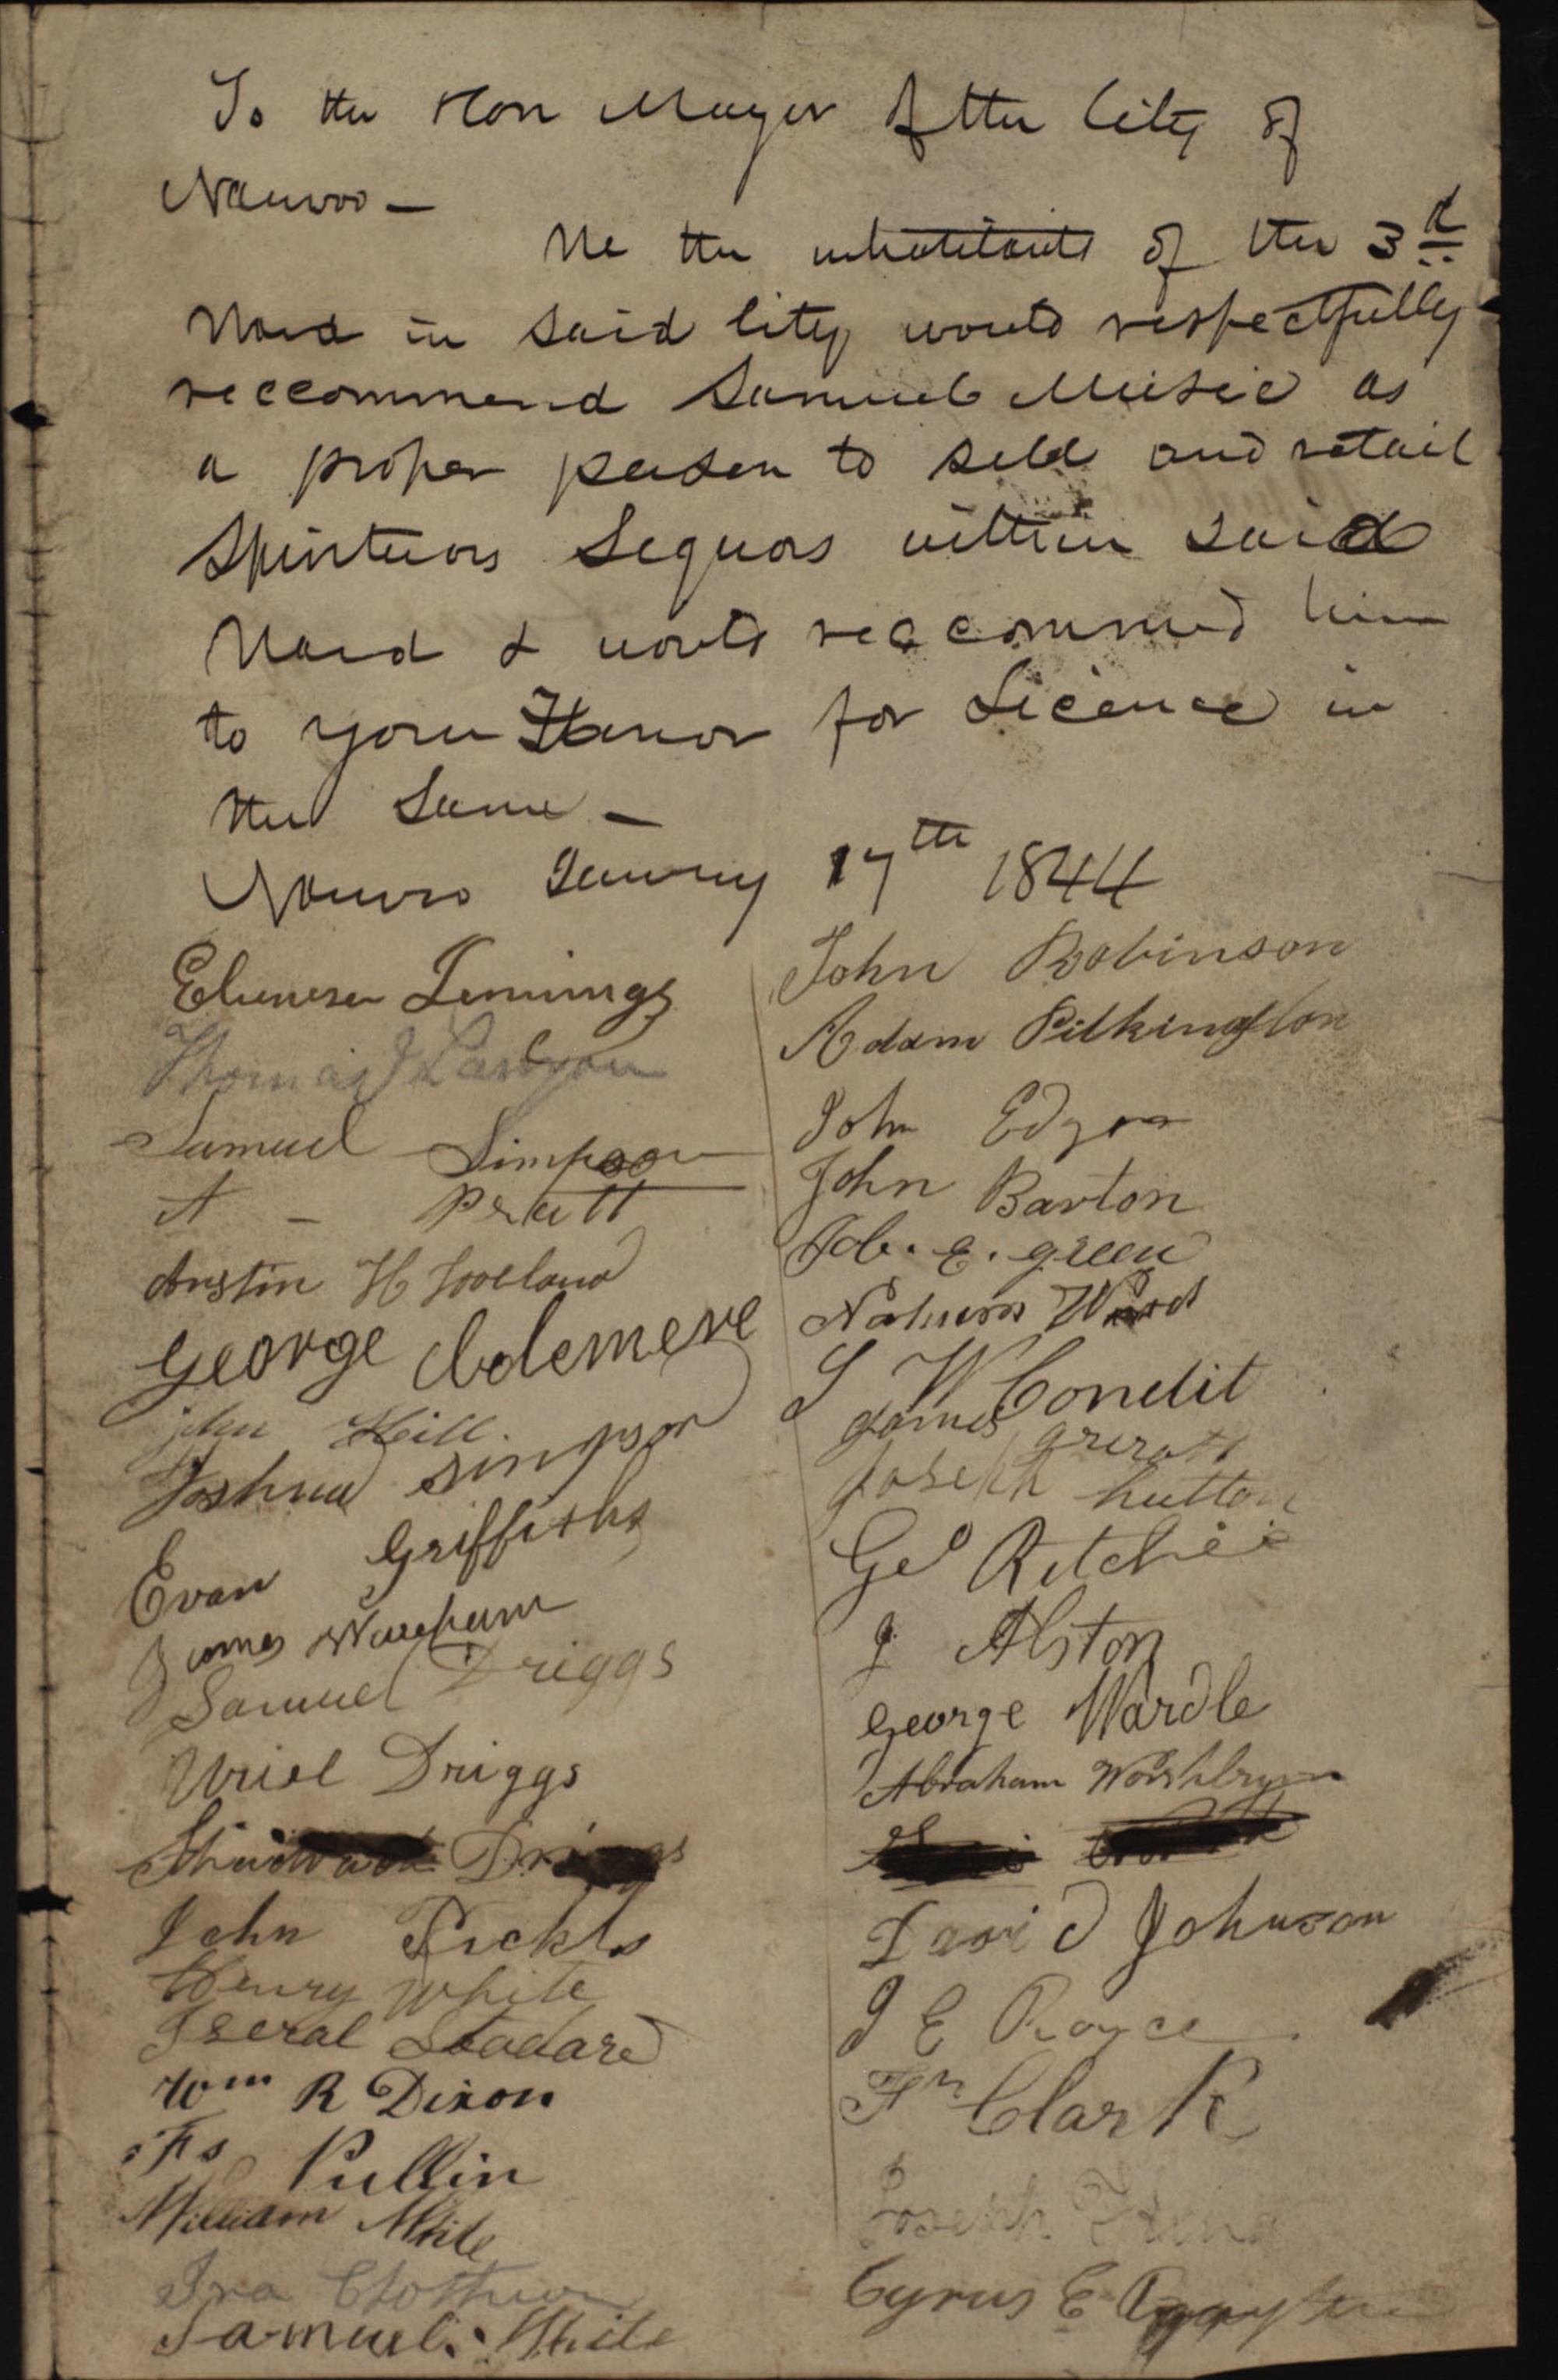 To the Hon Mayor of the City of
Nauvoo —
We the inhabitants of the 3d
Ward in said City would respectfully
reccommend Samuel Music as
a proper person to sell and retail
Spirituors Liquors within said
Ward & would reccommend him
to your Honor for Licence in
the Same —
Nauvoo January 17th 1844
Ebenezer Jennings
Thomas J
Samuel Simpson
A – Pratt
Austin H Loveland
George Colemere
john Hill.
Joshua simpson
Evan Griffiths
James Wareham
Samuel Driggs
Uriel Driggs
Shadrack Driggs
John Pickls
Henry White
Iseral Stodard
Wm R Dixon
Pullin
William White
Ira Clothier
Samuel White
John Robinson
Adam Pilkington
John Edgar
John Barton
Job. E. green
Nahum Ward
S W Condit
James
Joseph hutton
Geo Ritchie
J Alston
George Wardle
Abraham Washburn
David Johnson
J E Royce
Fn Clark
Joseph
Cyrus E